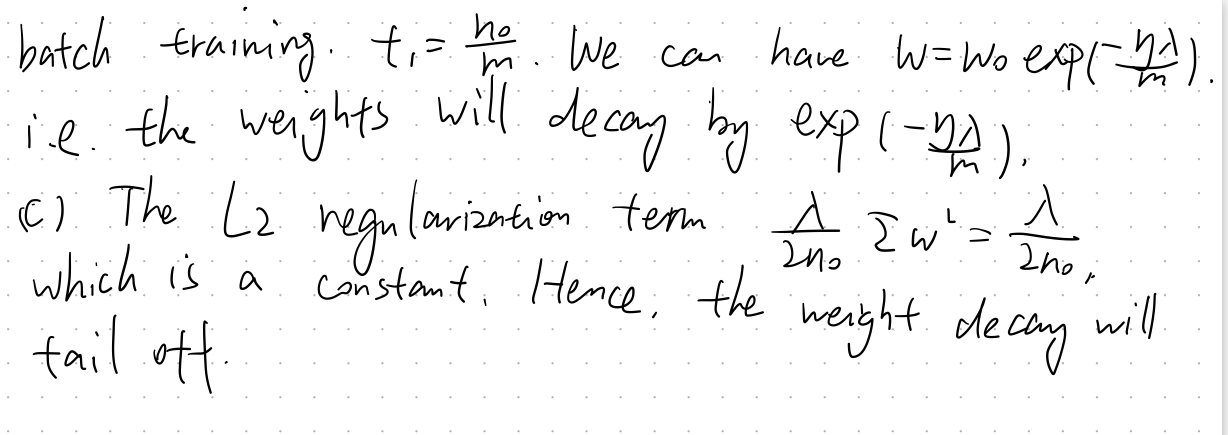 batch training. t₁ = n₀/m. We can have w = w₀ exp(-ηλ/m).
i.e. the weights will decay by exp(-ηλ/m).
(c) The L2 regularization term λ/2n₀ Σw² = λ/2n₀,
which is a constant. Hence, the weight decay will
tail off.